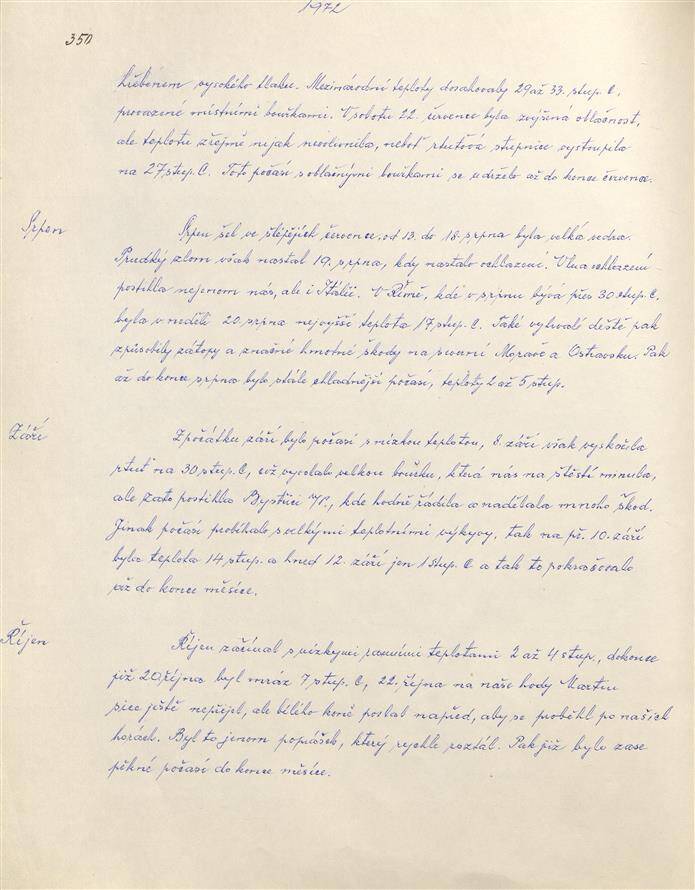 1972
350
hřebenem vysokého tlaku. Mezinárodní teploty dosahovaly 29 až 33. stup. C,
provázené místními bouřkami. V sobotu 22. července byla zvýšená oblačnost,
ale teplotu zřejmě nijak neovlivnila, neboť rtuťová stupnice vystoupila
na 27 stup. C. Toto počasí s oblačnými bouřkami se udrželo až do konce července.
Srpen
Srpen šel ve štěpějích července, od 13. do 18. srpna byla velká vedra.
Prudký zlom však nastal 19. srpna, kdy nastalo ochlazení. Vlna ochlazení
postihla nejenom nás, ale i Itálii. V Římě, kde v srpnu bývá přes 30 stup. C,
byla v neděli 20. srpna nejvyšší teplota 17 stup. C. Také vytrvalé deště pak
způsobily zátopy a značné hmotné škody na severní Moravě a Ostravsku. Pak
až do konce srpna bylo stále chladnější počasí, teploty 2 až 5 stup.
Září
Zpočátku září bylo počasí s nízkou teplotou, 8. září však vyskočila
rtuť na 30 stup. C, což vyvolalo velkou bouřku, která nás na štěstí minula,
ale zato postihla Bystřici /P., kde hodně řádila a nadělala mnoho škod.
Jinak počasí probíhalo s velkými teplotními výkyvy, tak na př. 10. září
byla teplota 14 stup. a hned 12. září jen 1 stup. C a tak to pokračovalo
až do konce měsíce.
Říjen
Říjen začínal s nízkými ranními teplotami 2 až 4 stup., dokonce
již 20. října byl mráz 7 stup. C, 22. října na naše hody Martin
sice ještě nepřijel, ale bílého koně poslal napřed, aby se proběhl po našich
horách. Byl to jenom poprašek, který rychle roztál. Pak již bylo zase
pěkné počasí do konce měsíce.